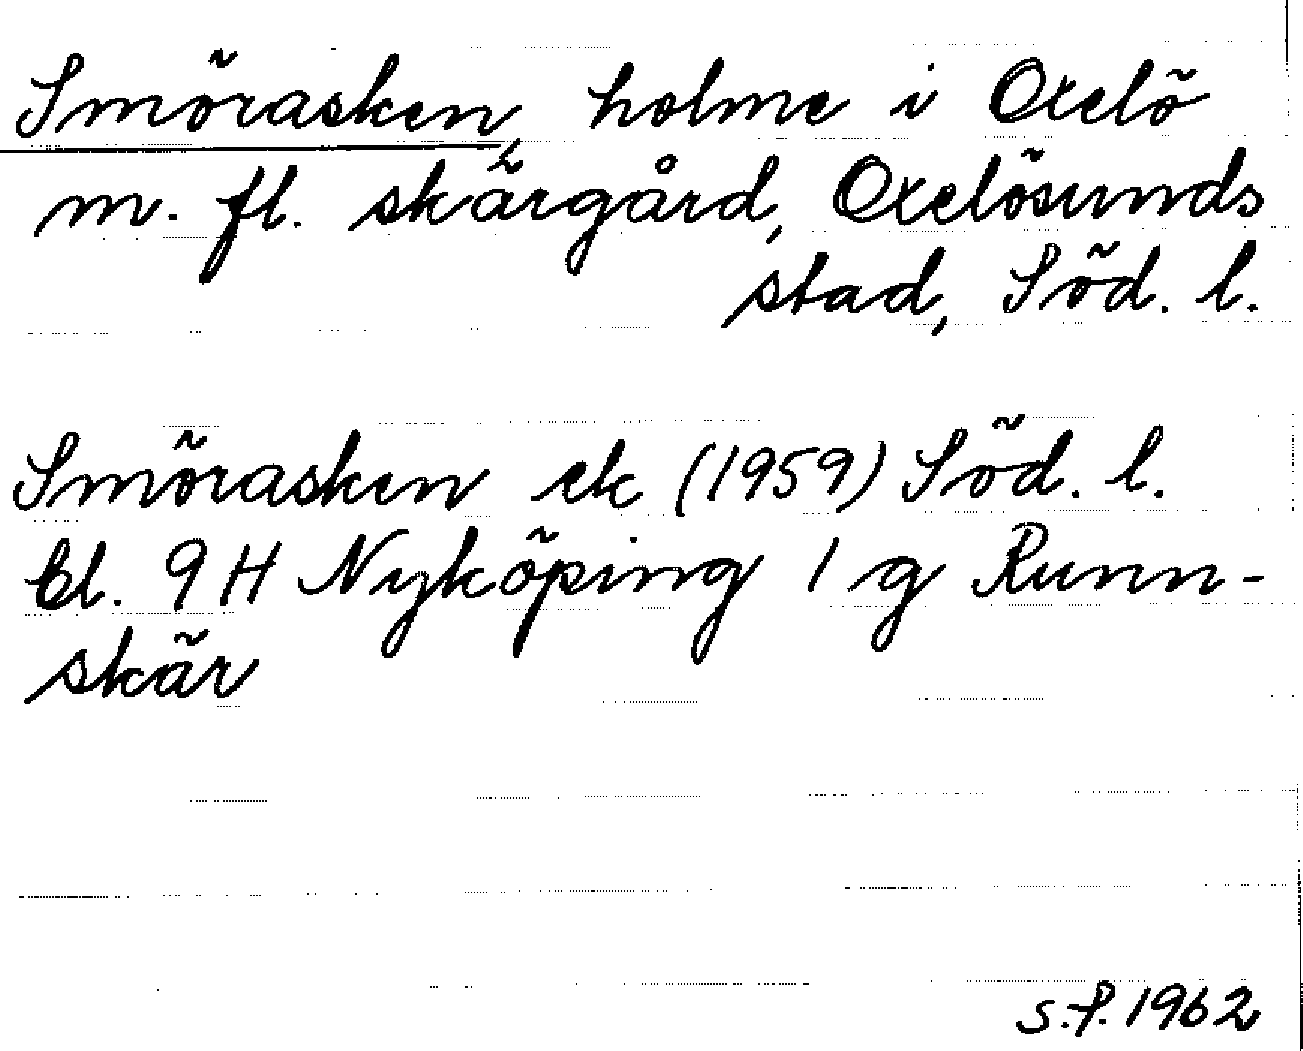 Smörasken, holme i Oxelö
m. fl. skärgård, Oxelösunds
stad, Söd. l.
Smörasken ek (1959) Söd. l.
bl. 9 H Nyköping 1 g Runn-
skär
S.P. 1962